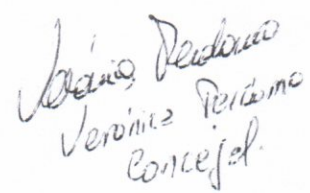 Verónica Perdomo
Verónica Perdomo
Concejal.